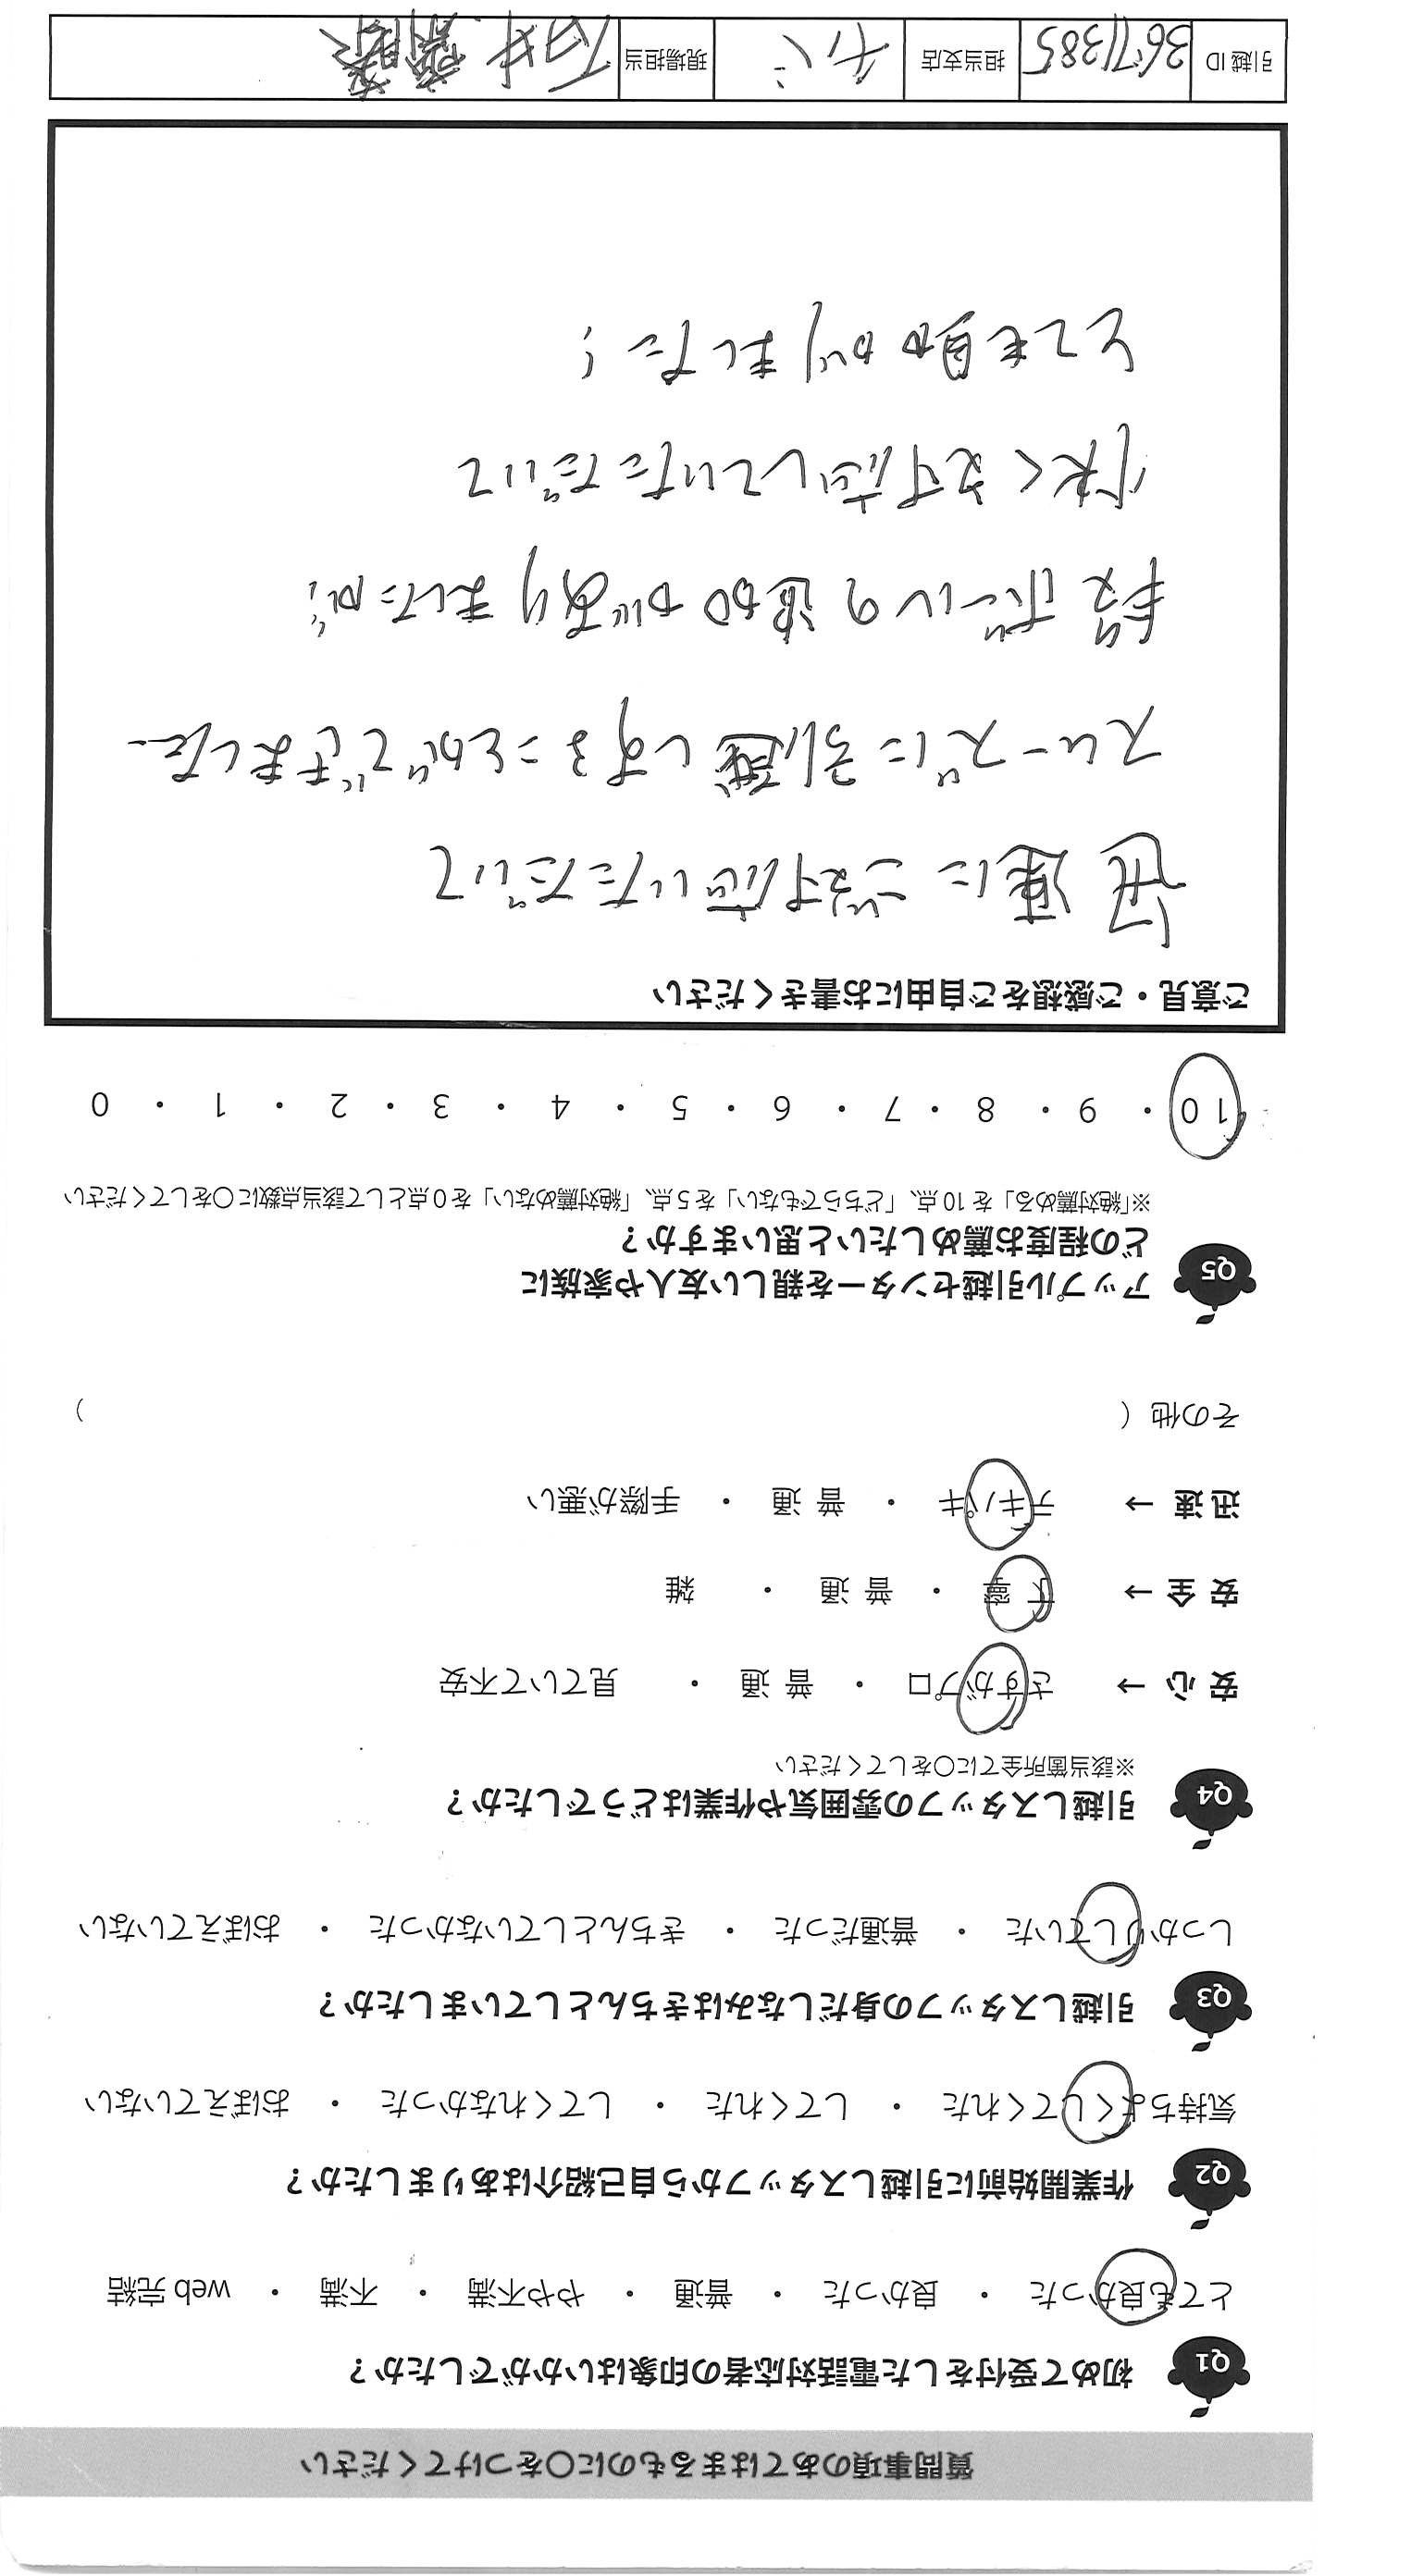 質問事項のあてはまるものに〇をつけてください
Q1 初めて受付をした電話対応者の印象はいかがでしたか？
とても良かった ・ 良かった ・ 普通 ・ やや不満 ・ 不満 ・ web 完結
Q2 作業開始前に引越しスタッフから自己紹介はありましたか？
気持ちよくしてくれた ・ してくれた ・ してくれなかった ・ おぼえていない
Q3 引越しスタッフの身だしなみはきちんとしていましたか？
しっかりしていた ・ 普通だった ・ きちんとしていなかった ・ おぼえていない
Q4 引越しスタッフの雰囲気や作業はどうでしたか？
※該当箇所全てに〇をしてください
安 心 → さすがプロ ・ 普 通 ・ 見ていて不安
安 全 → 丁 寧 ・ 普 通 ・ 雑
迅 速 → テキパキ ・ 普 通 ・ 手際が悪い
その他（ ）
Q5 アップル引越センターを親しい友人や家族に
どの程度お薦めしたいと思いますか？
※「絶対薦める」を 10 点、「どちらでもない」を 5 点、「絶対薦めない」を 0 点として該当点数に〇をしてください
10 ・ 9 ・ 8 ・ 7 ・ 6 ・ 5 ・ 4 ・ 3 ・ 2 ・ 1 ・ 0
ご意見・ご感想をご自由にお書きください
迅速にご対応いただいて
スムーズに引越しすることができました。
段ボールの追加がありましたが、
快く対応していただいて
とても助かりました！
引越 ID 3671385 担当支店 千バ 現場担当 石井